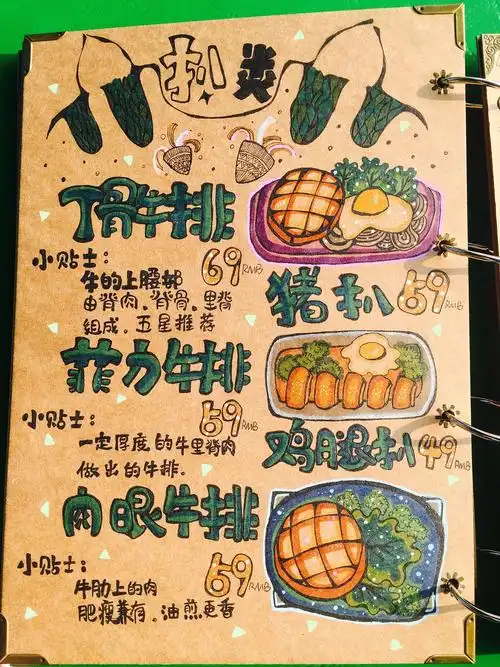 扒类
T骨牛排
小贴士:
69RMB
牛的上腰部
由脊肉,脊骨,里脊
组成。五星推荐
猪扒 59RMB
菲力牛排
小贴士:
59RMB
一定厚度的牛里脊肉
做出的牛排。
鸡腿扒 49RMB
肉眼牛排
小贴士:
59RMB
牛肋上的肉
肥瘦兼存。油煎更香